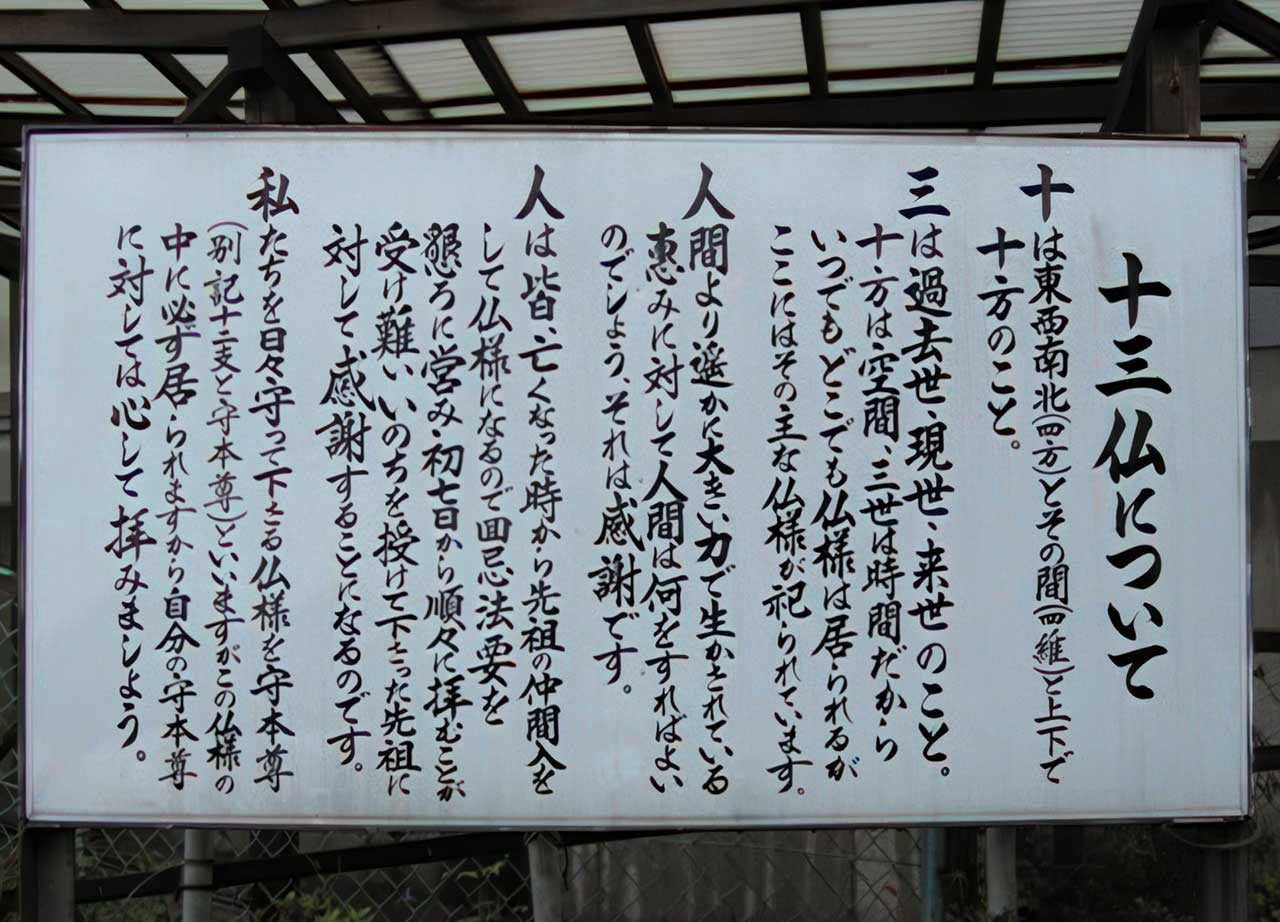 十三仏について
十は東西南北(四方)とその間(四維)と上下で
十方のこと。
三は過去世、現世、来世のこと。
十方は空間、三世は時間だから
いつでもどこでも仏様は居られるが
ここにはその主な仏様が祀られています。
人間より遥かに大きい力で生かされている
恵みに対して人間は何をすればよい
のでしょう、それは感謝です。
人は皆、亡くなった時から先祖の仲間入を
して仏様になるので回忌法要を
懇ろに営み、初七日から順々に拝むことが
受け難いいのちを授けて下さった先祖に
対して感謝することになるのです。
私たちを日々守って下さる仏様を守本尊
(別記十二支と守本尊)といいますがこの仏様の
中に必ず居られますから自分の守本尊
に対しては心して拝みましよう。